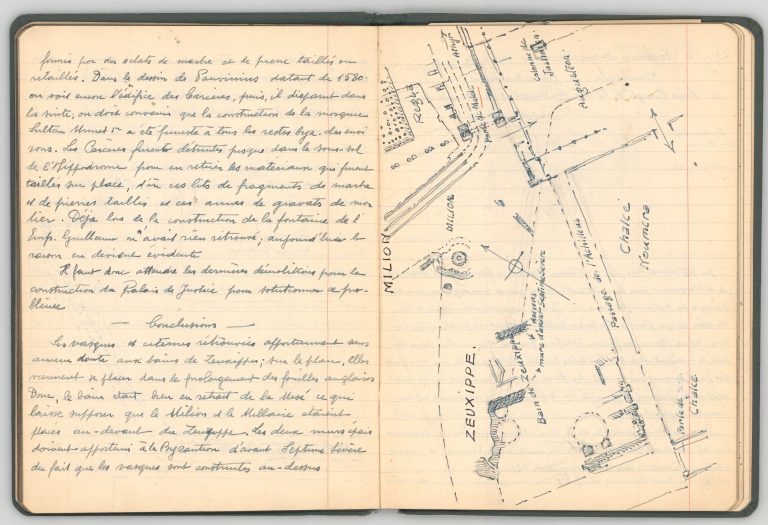 formés par des éclats de marbre et de pierre taillés ou
retaillés. Dans le dessin de Panvinius datant de 1580
on voit encore l'édifice des Carceres, puis, il disparait dans
la suite; on doit convenir que la construction de la mosquée
Sultan Ahmet Ir a été funeste à tous les restes byz. des envi
rons. Les Carceres furent détruites jusque dans le sous-sol
de l'Hippodrome pour en retirer les matériaux qui furent
taillés sur place, d'où ces lits de fragments de marbre
et de pierres taillés et ces amas de gravats de mor
tier. Déjà lors de la construction de la fontaine de l'
Emp. Guillaume on n'avait rien retrouvé; aujourd'hui la
raison en devient évidente
Il faut donc attendre les dernières démolitions pour la
construction du Palais de Justice pour solutionner ce pro-
blème
— Conclusions —
Les vasques et citernes retrouvées appartiennent sans
aucun doute aux bains de Zeuxippe; sur le plan, elles
viennent se placer dans le prolongement des fouilles anglaises
Donc, le bain était bien en retrait de la Mesé ce qui
laisse supposer que le Milion et le Millaire étaient
placés au-devant du Zeuxippe. Les deux murs épais
doivent appartenir à la Byzantion d'avant Septime Sévère
du fait que les vasques sont construites au-dessus
Regia
Colonne de
Justinien
Augusteon
MILION
MILION
Chalce
Noumera
Passage de l'Achilleus
ZEUXIPPE.
Bain de Zeuxippe
murs d'avant Septime Sévère
Porte de la
Chalce